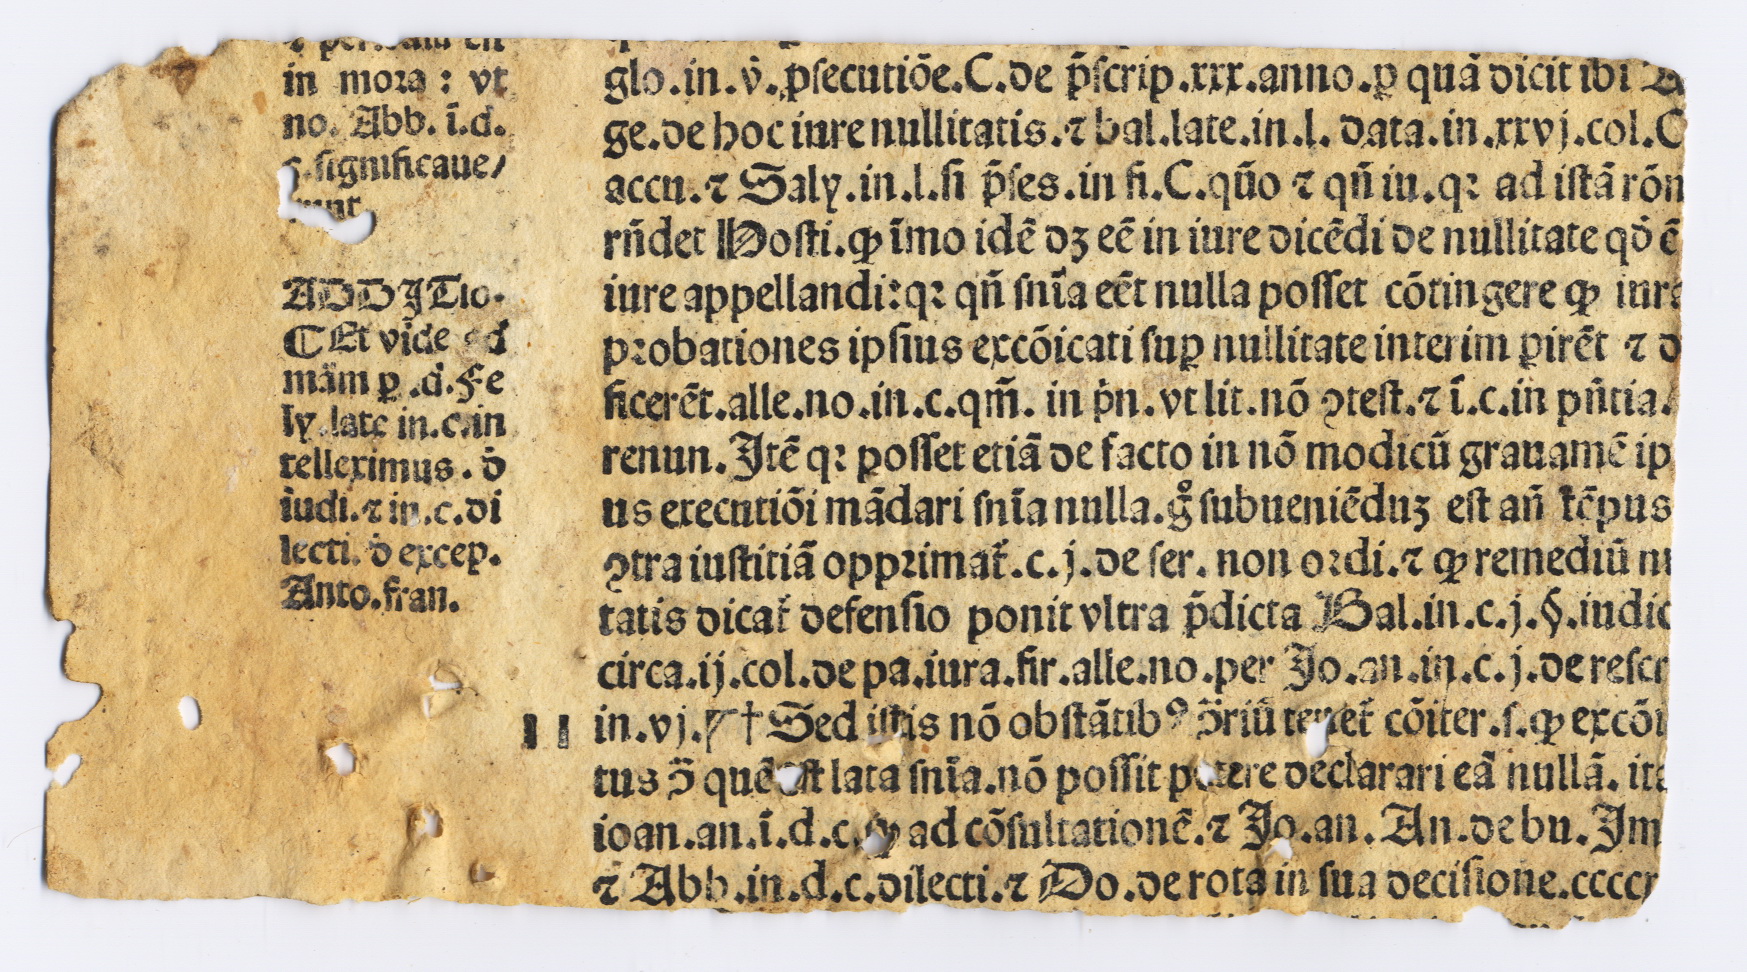 in mora : vt
no. Abb. ī.d.
§.significaue/
runt
ADDITIo.
¶ Et vide ad
mām ꝑ .d.Fe
ly.late in.c.in
tellexi​mus. đ
iudi.⁊ in.c.di
lecti. đ excep.
Anto.fran.
glo.in.v̇.ꝓsecutiōe.C.de p̄scrip.xxx.anno.ꝑ quā dicit ibi
ge.de hoc iure nullitatis.⁊ bal.late.in.l. data.in.xxvj.col.C
accu.⁊ Saly.in.l.si p̄ses.in fi.C.quō ⁊ qn̄ iu.qꝛ ad istā rōn
rn̄det Hosti.ꝙ īmo idē dꝫ eē in iure dicēdi de nullitate qđ ē
iure appellandi:qꝛ qn̄ snīa eēt nulla posset cōtingere ꝙ iure
probationes ipsius excōicati suꝑ nullitate interim ꝑirēt ⁊ d
ficerēt.alle.no.in.c.qm̄. in pṅ.vt lit.nō ꝯtest.⁊ ī.c.in pn̄tia.
renun.Itē qꝛ posset etiā de facto in nō modicū grauamē ip
us executiōi mādari snīa nulla.gͦ subueniēduꝫ est an̄ tēpus
ꝯtra iustitiā opprimat̄.c.j.de ser. non ordi.⁊ ꝙ remediū nu
tatis dicat̄ defensio ponit vltra p̄dicta Bal.in.c.j.§.iudic
circa.ij.col.de pa.iura.fir.alle.no.per Jo.an.in.c.j.de rescr
11 in.vj. †Sed istis nō obstātibꝰ ꝯ̄riū tenet̄ cōiter.s.ꝙ excōi
tus ꝯ̄ quē est lata snīa.nō possit petere declarari eā nullā. ita
ioan.an.ī.d.c. ad cōsultationē.⁊ Jo.an. An.de bu. Im
⁊ Abb.in.d.c.dilecti.⁊ Do.de rota in sua decisione.ccccx